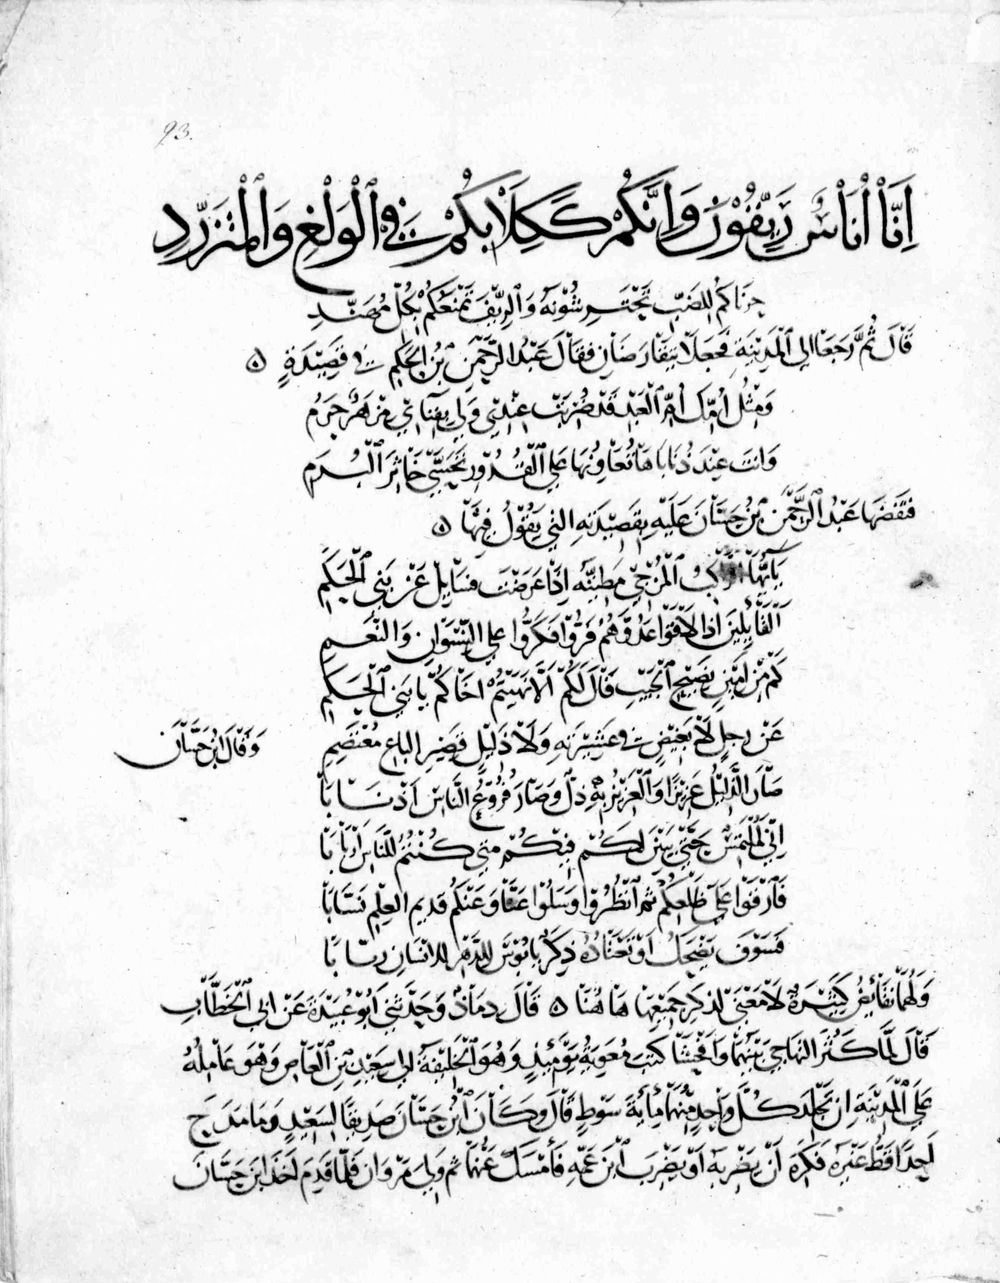 93.
اِنَّا اُنَاسٌ رَيِّفُوْنَ وَاِنَّكُمْ كَكِلَابِكُمْ فِي الْوَلْغِ وَالْمُتَزَرَّدِ
حزناكم للضب تحترسونه والريف نمنعكم بكل مهند
قَالَ ثُمَّ رجعا الي المدينة فجعلا يتقارضان فقال عبد الرحمن بن الحكم في قصيدةٍ ۵
ومثل امك ام العبد قد ضربت عندي ولي بفناي مزهر جرم
وانت عند ذناباها تعاونها علي القدور تحسّي خاثر البرم
فنقضها عبد الرحمن بن حسان عليه بقصيدته التي يقول فيها ۵
يايها الراكب المزجي مطيته اذا عرضت فسايل عن بني الحكم
القايلين اذا لاقوا عدوهم فروا فكروا علي النسوان والنعم
كم من امين نصيح الجيب قال لكم الا نهيتم اخاكم يا بني الحكم
عن رجل لا بغيض في عشيرته ولا ذليل قصير الباع معتصم
وقال ابن حسان
صار الذليل عزيزا والعزيز به ذل وصار فروع الناس اذنابا
اني لملتمس حتي يبين لكم فيكم متي كنتم للناس اربابا
فارقوا علي ظلعكم ثم انظروا وسلوا عنا وعنكم قديم العلم نسابا
فسوف يضحك او تعتاده ذكر يا بوس للدهر للانسان ريابا
ولهما نقايض كثيرة لا معني لذكر جميعها هاهنا ۵ قال دماذ وحدثني ابو عبيدة عن ابي الخطاب
قال لما كثر التهاجي بينهما وافحشا كتب معوية يوميذ وهو الخليفة الي سعيد بن العاص وهو عامله
علي المدينة ان تجلد كل واحد منهما ماية سوط قال وكان ابن حسان صديقا لسعيد وما مدح
احدا قط غيره فكره ان يضربه او يضرب ابن عمه فامسك عنهما ثم ولي مروان فلما قدم اخذ ابن حسان